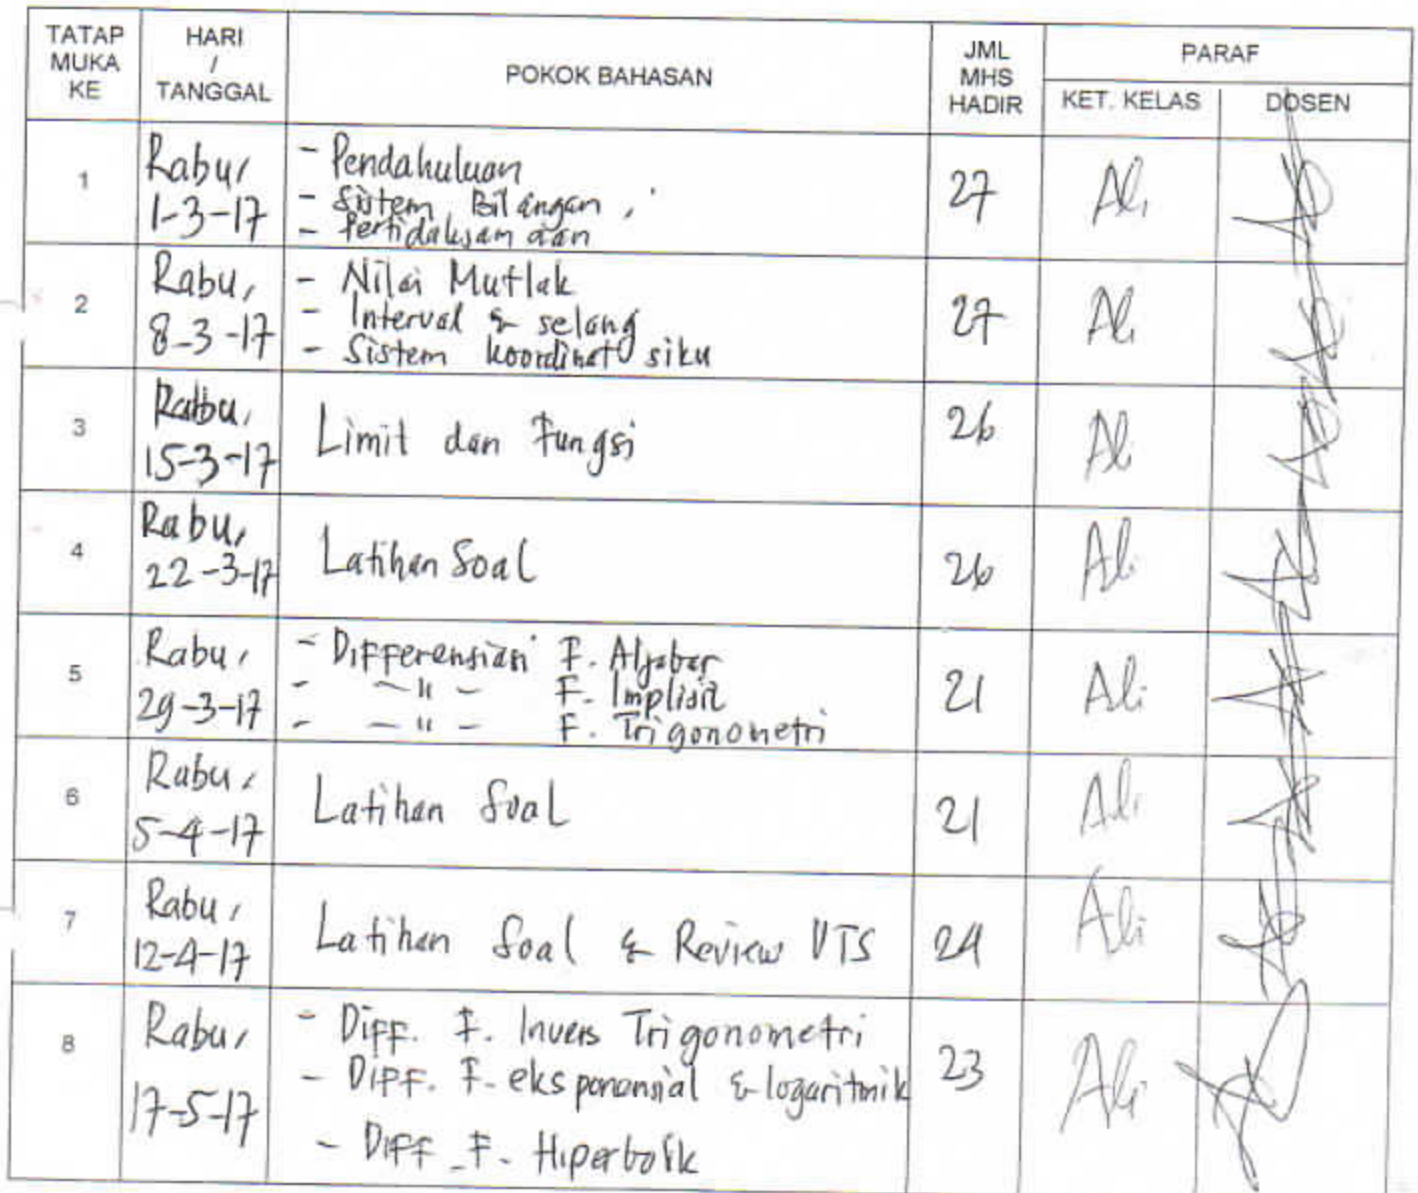 TATAP MUKA KE
HARI / TANGGAL
POKOK BAHASAN
JML MHS HADIR
PARAF
KET. KELAS
DOSEN
1
Rabu,
1-3-17
- Pendahuluan
- Sistem Bilangan,
- Pertidaksamaan
27
Ali
2
Rabu,
8-3-17
- Nilai Mutlak
- Interval & selang
- Sistem koordinat siku
27
Ali
3
Rabu,
15-3-17
Limit dan Fungsi
26
Ali
4
Rabu,
22-3-17
Latihan Soal
26
Ali
5
Rabu,
29-3-17
- Differensiasi F. Aljabar
- —〃— F. Implisit
- —〃— F. Trigonometri
21
Ali
6
Rabu,
5-4-17
Latihan Soal
21
Ali
7
Rabu,
12-4-17
Latihan Soal & Review UTS
24
Ali
8
Rabu,
17-5-17
- Diff. F. Invers Trigonometri
- Diff. F. eksponensial & logaritmik
- Diff. F. Hiperbolik
23
Ali